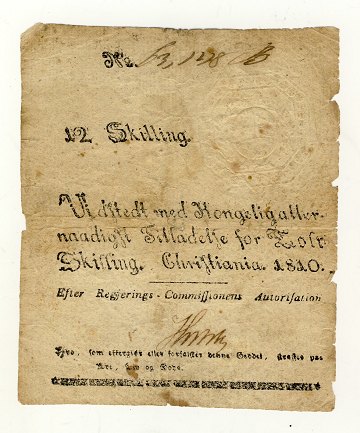 No. 63,128 B
12 Skilling.
Udstedt med Kongelig aller-
naadigst Tilladelse for Tolv
Skilling. Christiania. 1810.
Efter Regjerings-Commissionens Autorisation
som eftergiør eller forfalsker denne Seddel, straffes paa
Ære, Liv og Gods.